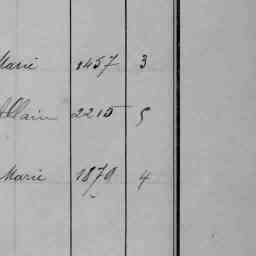 Marie 1457 3
Allain 2215 5
Marie 1879 4